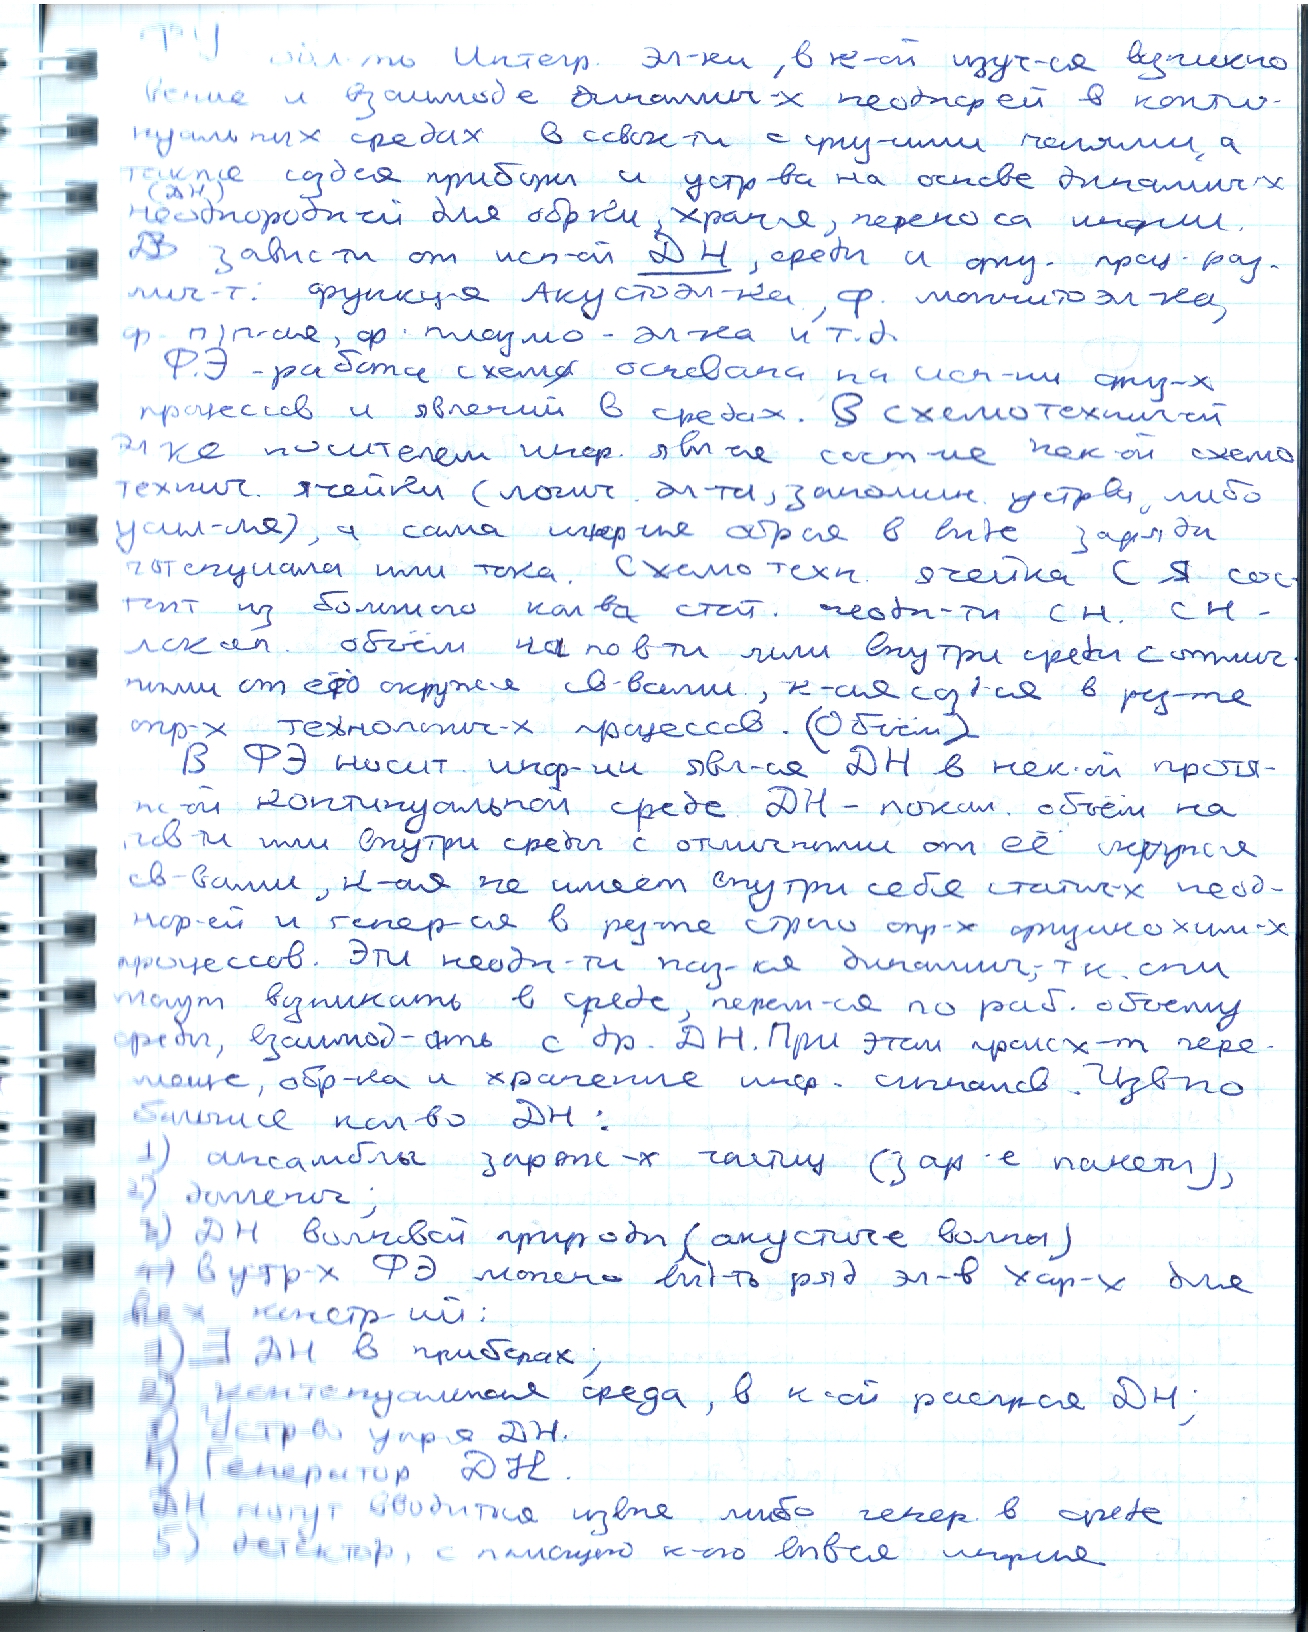 ФЭ обл-ть Интегр. эл-ки, в к-ой изуч-ся возникно
вение и взаимоде динамич-х неоднорей в конти-
нуальных средах в совок-ти с физ-ими полями, а
также создся приборы и устр-ва на основе динамич-х
(ДН)
неоднородн-ей для обрки, храния, переноса инфии.
В завис-ти от исп-ой ДН, среды и физ. проц. раз-
лич-т: функц-я Акустоэл-ка, ф. магнитоэл-ка,
ф. п/п-ая, ф. плазмо-эл-ка и т.д.
Ф.Э - работа схемы основана на исп-ии физ-х
процессов и явлений в средах. В схемотехнич-ой
эл ке носителем инф. явл-ся сост-ие нек-ой схемо
технич. ячейки (логич. эл-ты, запомин. устр-ва, либо
усил-ля), а сама инф-ия обрся в виде заряда
потенциала или тока. Схемотехн. ячейка СЯ сос-
тоит из большого кол-ва стат. неодн-ти СН. СН -
локал. объём на пов-ти или внутри среды с отлич-
ными от его окружся св-вами, к-ая созд-ся в рез-те
опр-х технологич-х процессов. (Объём)
В ФЭ носит. инф-ии явл-ся ДН в нек-ой протя-
ж-ой континуальной среде ДН - локал. объём на
пов-ти или внутри среды с отличными от её окружся
св-вами, к-ая не имеет внутри себя статич-х неод-
нор-ей и генер-ся в рез-те строго опр-х физикохим-х
процессов. Эти неодн-ти наз-ся динамич., т к. они
могут возникать в среде, перем-ся по раб. объему
среды, взаимод-ать с др. ДН. При этом происх-т пере-
меще, обр-ка и хранение инф. сигналов. Изв-но
большое кол-во ДН:
1) ансамбли заряж-х частиц (зар-е пакеты),
2) домены;
3) ДН волновой природы (акустич-е волны)
4) В устр-х ФЭ можно выд-ть ряд эл-в хар-х для
всех констр-ий:
1) ∃ ДН в приборах;
2) континуальная среда, в к-ой распр-ся ДН;
3) Устр-во упр-я ДН.
4) Генератор ДН.
ДН могут вводится извне либо генер. в среде
5) детектор, с помощью к-го вывся инфия